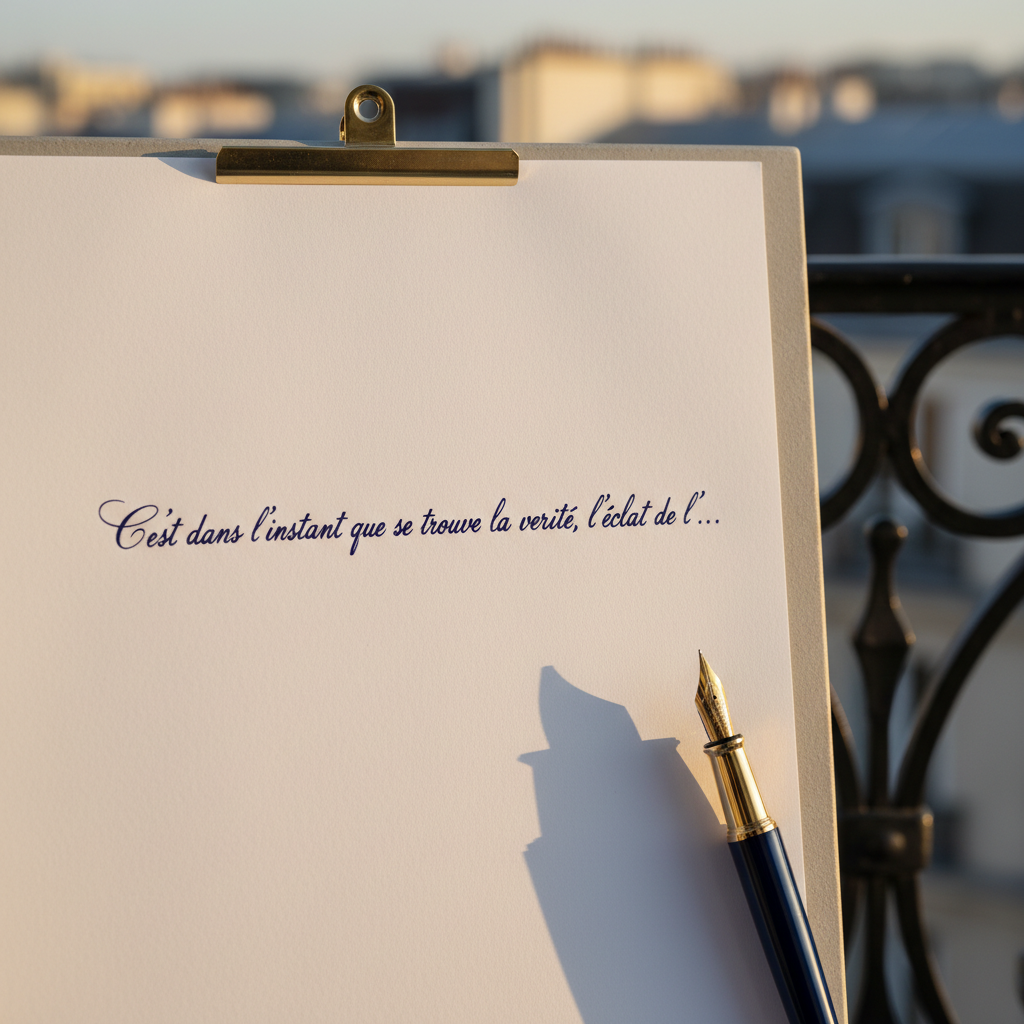 C'est dans l'instant que se trouve la verité, l'éclat de l'...